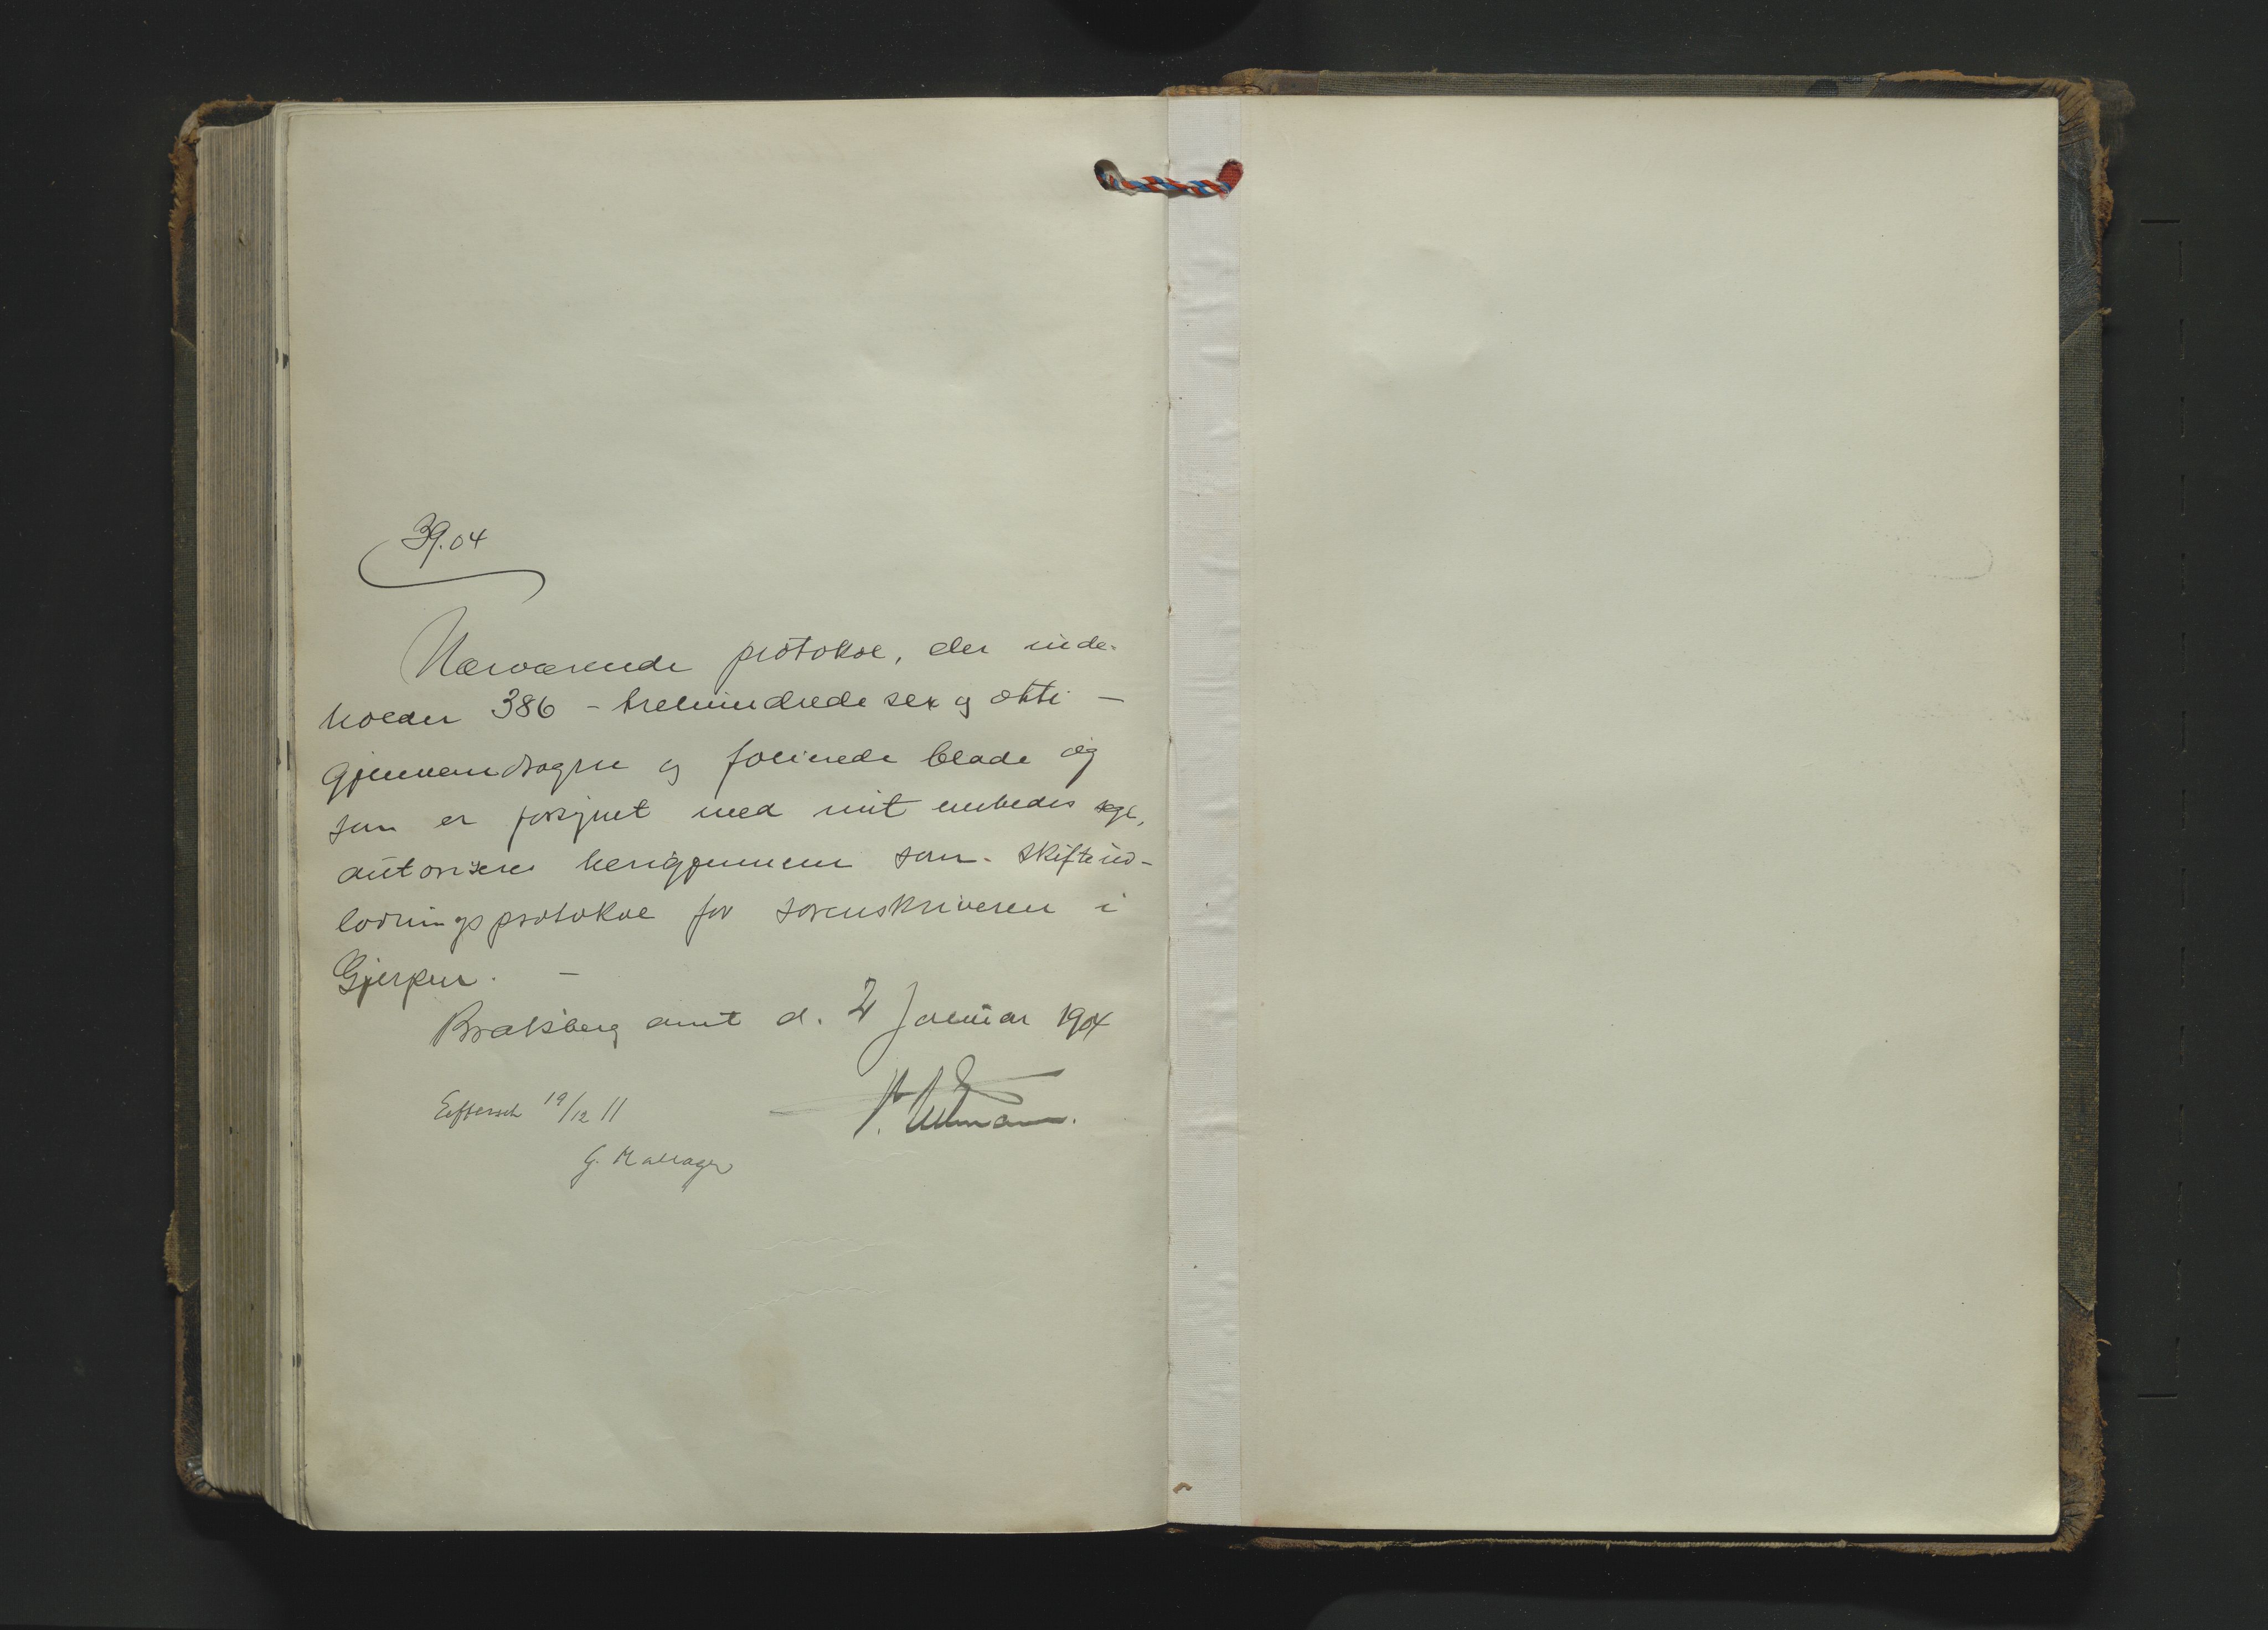 39.04
Nærværende protokol, der inde-
holder 386 - trehundrede sex og otti -
gjennemdragne og folierede blade og
som er forsynet med mit embedes segl,
autoriseres herigjennem som skifteud-
lodningsprotokol for sorenskriveren i
Gjerpen. -
Bratsberg amt d. 21 Januar 1904
V. Ullmann.
Eefterseet 19/12 11
G. Mallager